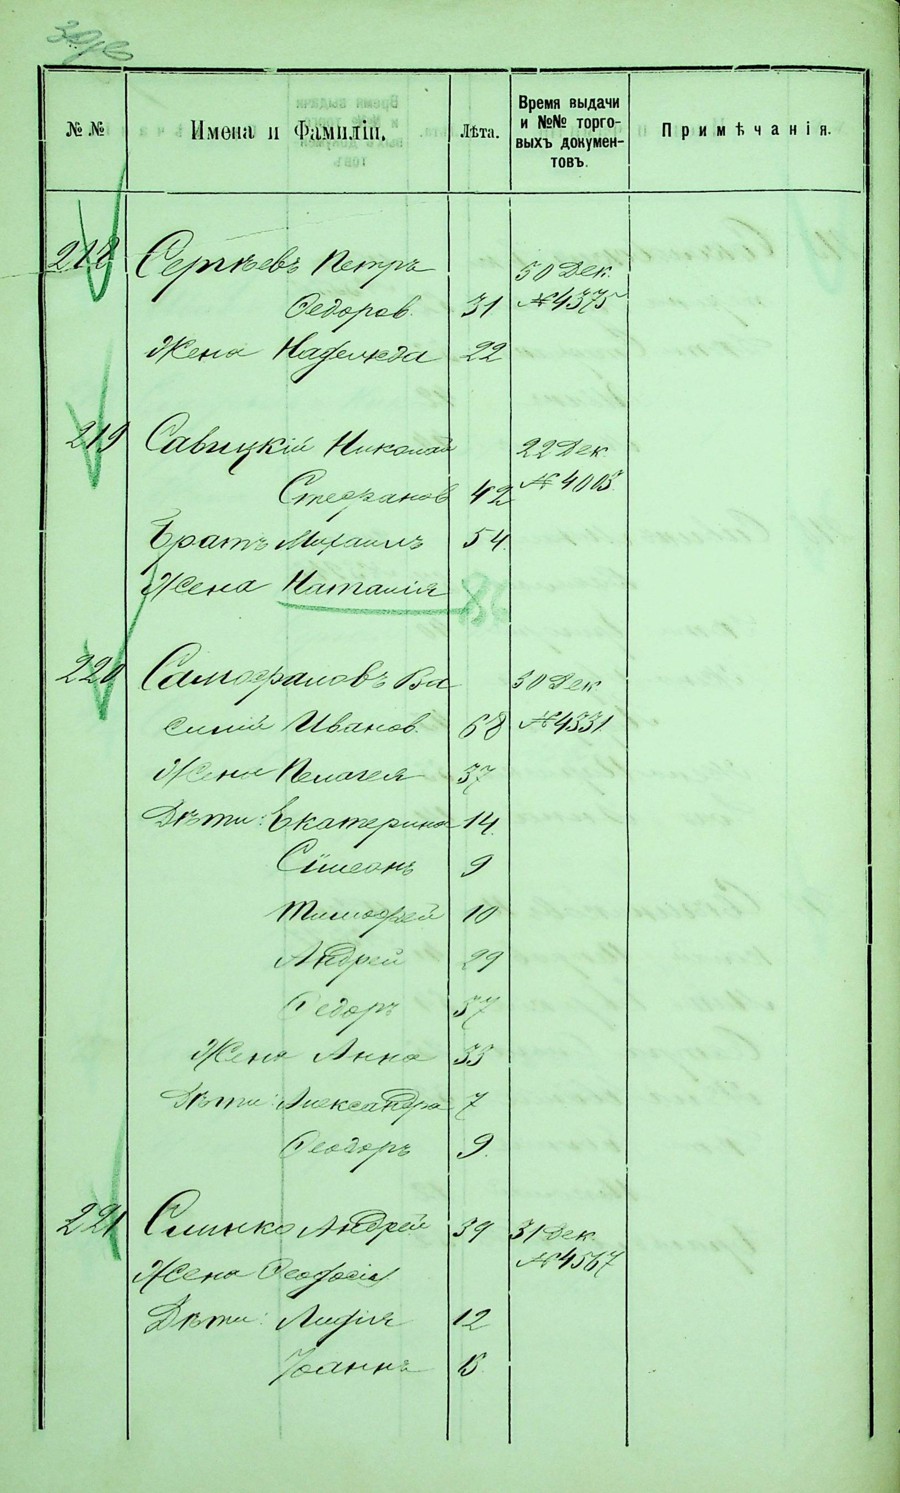 № №
Имена и Фамиліи.
Лѣта.
Время выдачи
и №№ торго-
выхъ докумен-
товъ.
Примѣчанія.
218 Сергѣевъ Петръ 30 Дек.
Федоров. 31 № 4375
Жена Надежда 22
219 Савицкій Николай 22 Дек
Стефанов 42 № 4003
Братъ Михаилъ 54.
Жена Наталія
220 Самофаловъ Ва 30 Дек
силій Иванов. 68 № 4331
Жена Пелагея 37
Дѣти: Екатерина 14.
Сѵмеонъ 9
Тимофей 10
Андрей 29
Федоръ 37
Жена Анна 33
Дѣти: Александра 7
Феодоръ 9.
221 Слинко Андрей 39 31 Дек.
Жена Феодосія № 4567
Дѣти: Лидія 12
Іоаннъ